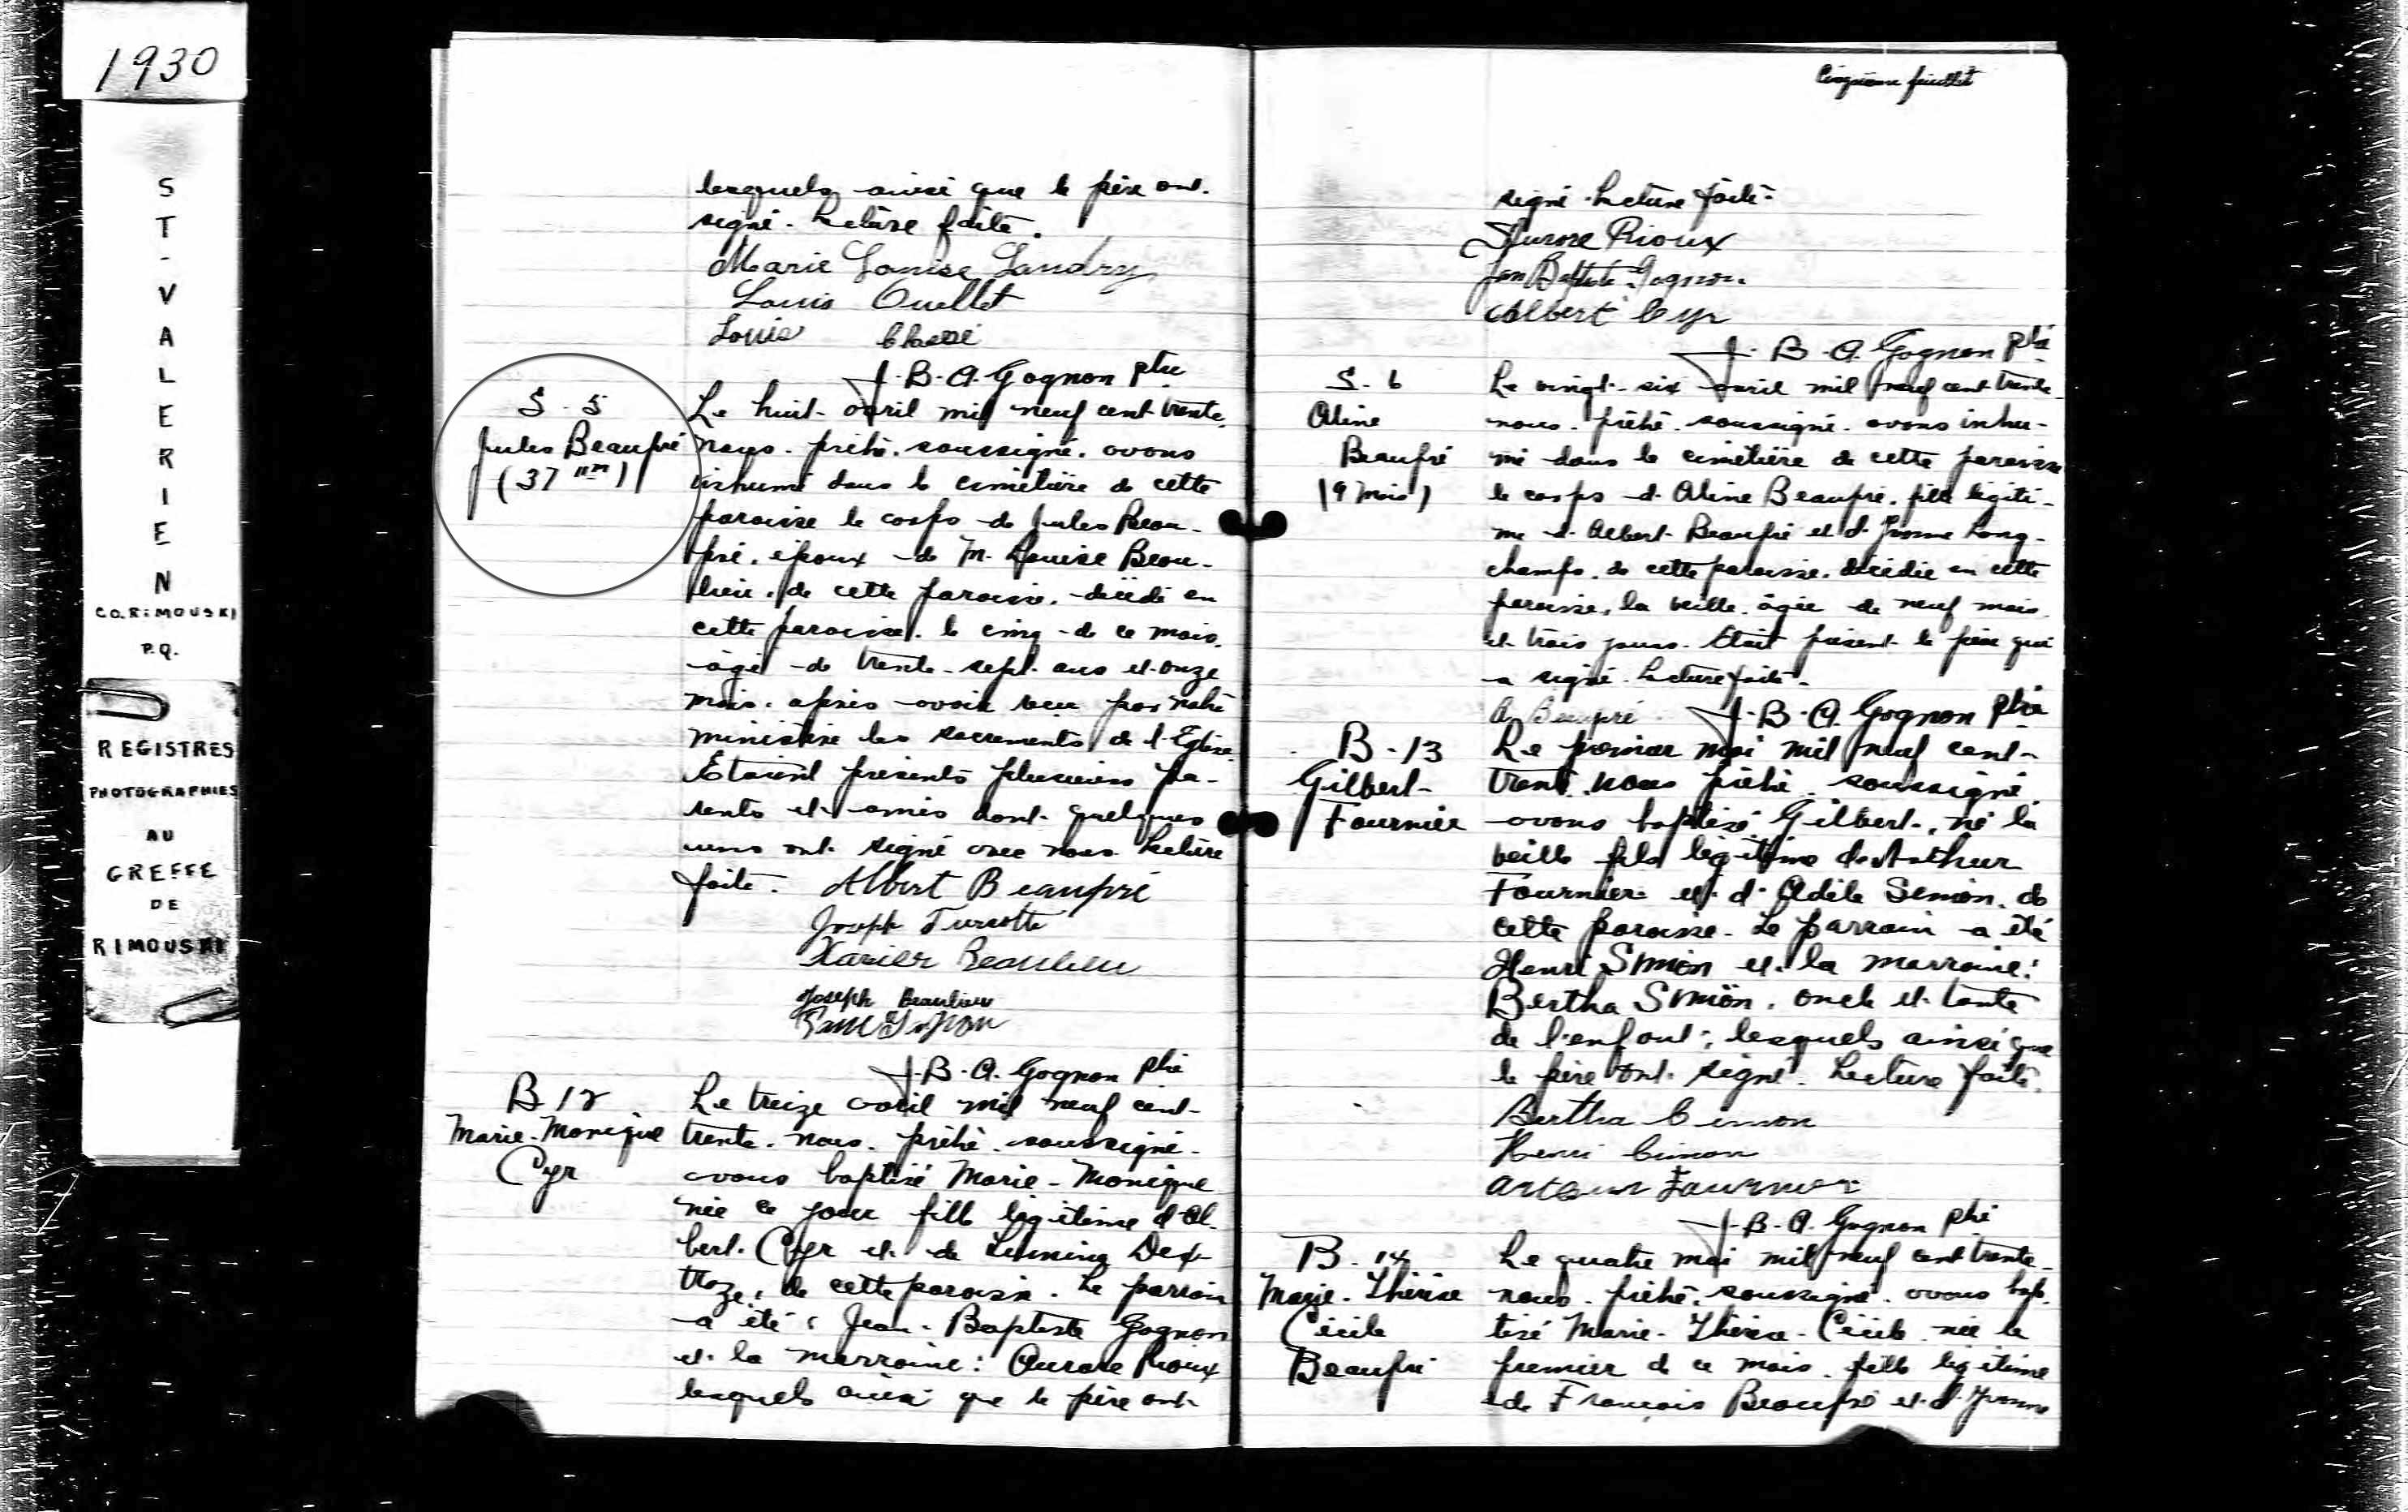 1930
ST-VALERIEN
CO. RIMOUSKI
P.Q.
REGISTRES
PHOTOGRAPHIES
AU
GREFFE
DE
RIMOUSKI
lesquels ainsi que le père ont
signé. Lecture faite.
Marie Louise Landry
Louis Ouellet
Louis
J. B. A. Gagnon ptre
S. 5
Jules Beaupré
(37 ans)
Le huit avril mil neuf cent trente,
nous, prêtre soussigné, avons
inhumé dans le cimetière de cette
paroisse le corps de Jules Beau-
pré, époux de M. Louise Beau-
lieu, de cette paroisse, décédé en
cette paroisse, le cinq de ce mois,
âgé de trente-sept ans et onze
mois, après avoir reçu par notre
ministère les sacrements de l'Eglise.
Etaient présents plusieurs pa-
rents et amis dont quelques
uns ont signé avec nous. Lecture
faite. Albert Beaupré
Joseph Turcotte
Xavier Beaulieu
Joseph Beaulieu
J. B. A. Gagnon ptre
B 12
Marie-Monique
Cyr
Le treize avril mil neuf cent
trente, nous, prêtre soussigné
avons baptisé Marie-Monique
née ce jour fille légitime d'Al-
bert Cyr et de
de cette paroisse. Le parrain
a été: Jean-Baptiste Gagnon
et la marraine: Aurore Rioux
lesquels ainsi que le père ont
Cinquième feuillet
signé. Lecture faite.
Aurore Rioux
Jean Baptiste Gagnon
Albert Cyr
J. B. A. Gagnon ptre
S. 6
Aline
Beaupré
(9 mois)
Le vingt-six avril mil neuf cent trente
nous, prêtre soussigné, avons inhu-
mé dans le cimetière de cette paroisse
le corps d'Aline Beaupré, fille légiti-
me d'Albert Beaupré et d'Yvonne Long-
champs, de cette paroisse, décédée en cette
paroisse, la veille, âgée de neuf mois
et trois jours. Etait présent le père qui
a signé. Lecture faite.
A. Beaupré J. B. A. Gagnon ptre
B-13
Gilbert
Fournier
Le premier mai mil neuf cent
trente, nous prêtre soussigné,
avons baptisé Gilbert, né la
veille fils légitime de Arthur
Fournier et d'Adèle Simon, de
cette paroisse. Le parrain a été
Henri Simon et la marraine:
Bertha Simon, oncle et tante
de l'enfant; lesquels ainsi que
le père ont signé. Lecture faite.
Bertha Cimon
Henri Cimon
Arthur Fournier
J. B. A. Gagnon ptre
B. 14
Marie-Thérèse
Cécile
Beaupré
Le quatre mai mil neuf cent trente
nous, prêtre, soussigné, avons bap-
tisé Marie-Thérèse-Cécile née le
premier de ce mois, fille légitime
de François Beaupré et d'Yvonne